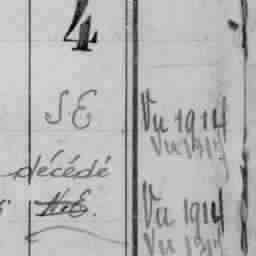 4
SE
Vu 1914
Vu 1917
décédé
Vu 1914
Vu 1917